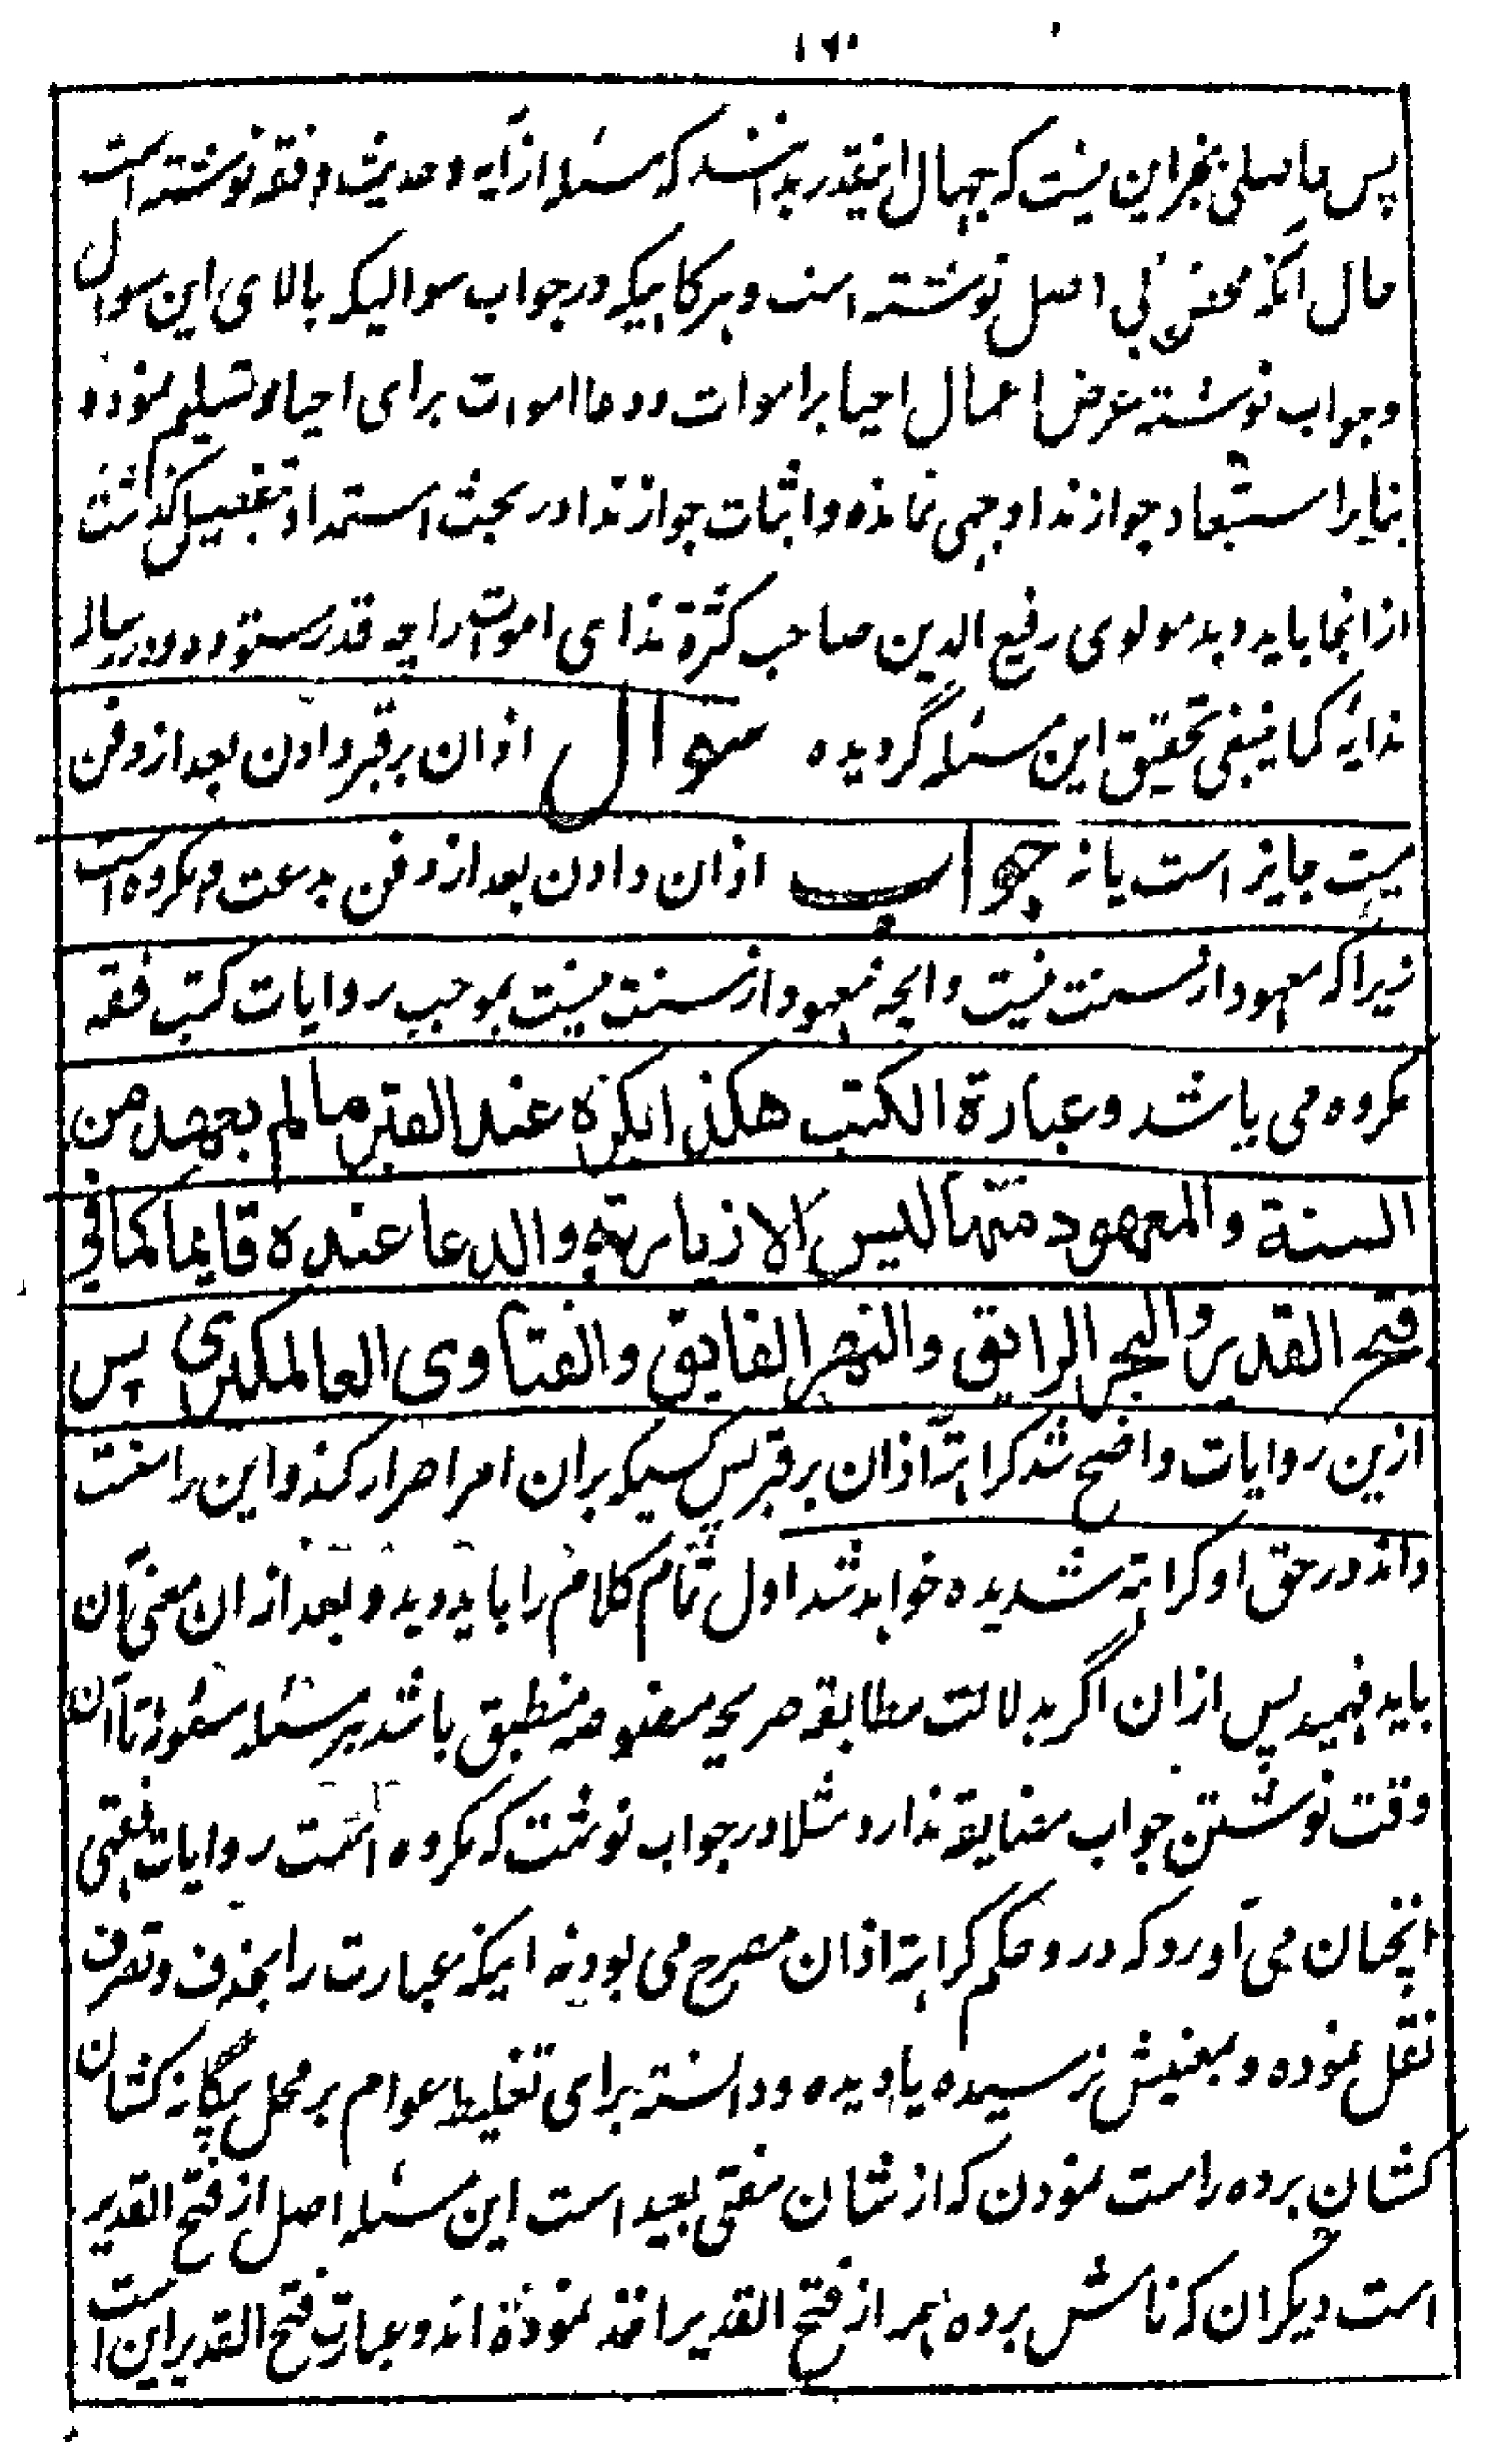 ۱۶۰
پس حاصلی بجز این نیست که جهال اینقدر بدانند که مسئله از آیه و حدیث و فقه نوشته است
حال آنکه محض بی اصل نوشته است و هرگاهیکه در جواب سوالیکه بالای این سوال
و جواب نوشته عرض اعمال احیا بر اموات و دعا اموات برای احیا و تسلیم نموده
بنابر استبعاد جواز ندا وجهی نمانده و اثبات جواز ندا در بحث استمداد بتفصیل گذشت
از انجا باید دید مولوی رفیع الدین صاحب کثرة ندای اموات را چه قدر ستوده و در رساله
ندائیه کما ینبغی تحقیق این مسئله گردیده سوال اذان بر قبر دادن بعد از دفن
میت جایز است یا نه جواب اذان دادن بعد از دفن بدعت و مکروه است
زیرا که معهود از سنت نیست و انچه معهود از سنت نیست بموجب روایات کتب فقه
مکروه می باشد وعبارة الکتب هکذا یکره عند القبر ما لم یعهد من
السنة والمعهود منها لیس الا زیارته والدعا عنده قایما کما فی
فتح القدیر والبحر الرایق والنهر الفایق والفتاوی العالمکیری پس
ازین روایات واضح شد کراهة اذان بر قبر پس کسیکه بران امر اصرار کند و این را سنت
داند در حق او کراهة شدیده خواهد شد اول تمام کلام را باید دید و بعد از ان معنی آن
باید فهمید پس ازان اگر بدلالت مطابقه صریحه منطبق باشد بر مسئله تا آن
وقت نوشتن جواب مضایقه ندارد مثلا در جواب نوشت که مکروه است روایات فقهی
انچنان می آورد که در و حکم کراهة اذان مصرح می بود نه اینکه عبارت را بحذف و تصرف
نقل نموده و بمعنیش نرسیده یا دیده و دانسته برای تغلیط عوام بر محل بیگانه کشان
کشان برده راست نمودن که از شان مفتی بعید است این مسئله اصل از فتح القدیر
است دیگران که نامش برده همه از فتح القدیر اخذ نموده اند و عبارت فتح القدیر این است